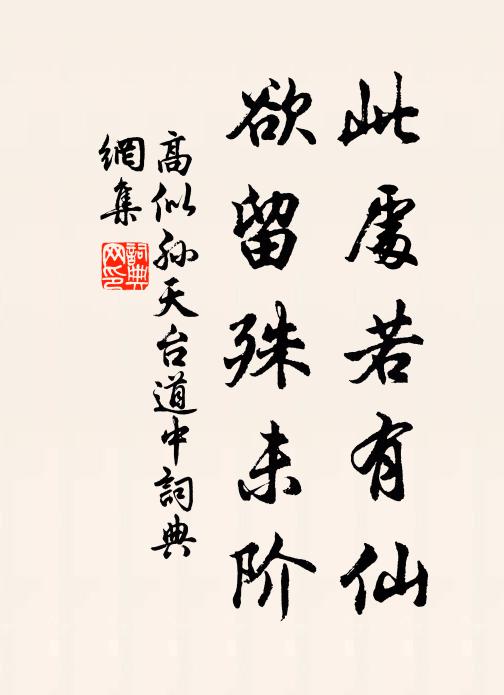 此處若有仙
欲留殊未阶
高似孙天台道中詞典
網集
詞典網印